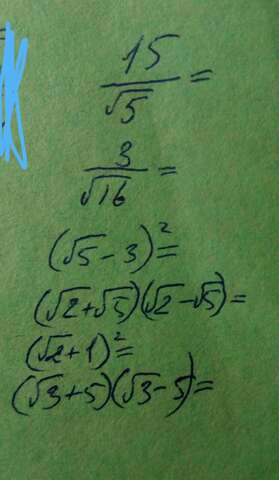 15/√5 =
3/√16 =
(√5 - 3)² =
(√2 + √5)(√2 - √5) =
(√2 + 1)² =
(√3 + 5)(√3 - 5) =